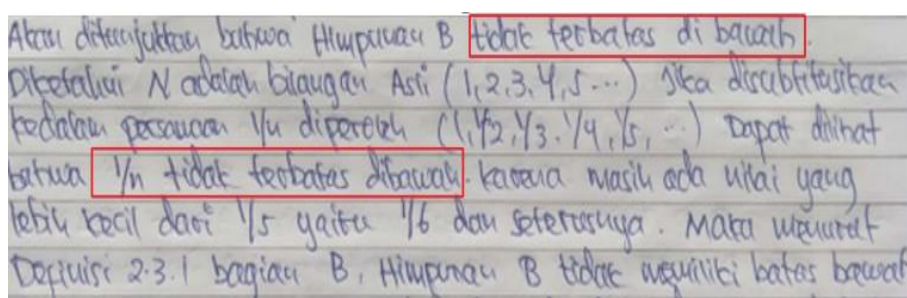 Akan ditunjukkan bahwa Himpunan B tidak terbatas di bawah.
Diketahui N adalah bilangan Asli (1,2,3,4,5...) Jika disubtitusikan
kedalam persamaan 1/n diperoleh (1,1/2,1/3,1/4,1/5,...) Dapat dilihat
bahwa 1/n tidak terbatas dibawah. Karena masih ada nilai yang
lebih kecil dari 1/5 yaitu 1/6 dan seterusnya. Maka menurut
Definisi 2.3.1 bagian B, Himpunan B tidak memiliki batas bawah